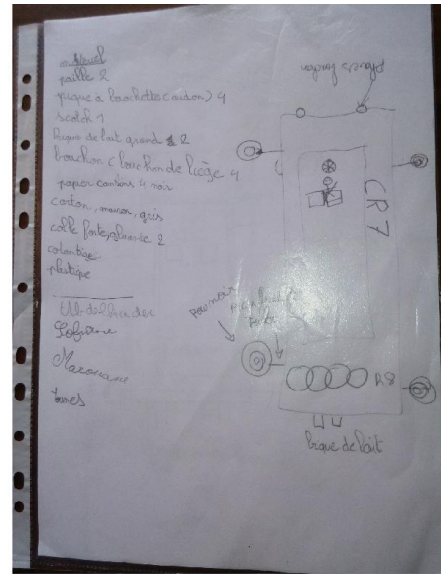 matériel
paille 2
pique à brochettes (curdon) 4
scotch 1
brique de lait grand 2
bouchon (bouchon de liège 4
papier camions 4 noir
carton, marron, gris
colle forte, gluante 2
coloriage
plastique
Abdelkader
Sofiane
Marouane
phares bouchon
CR7
pneu noir
R8
brique de lait